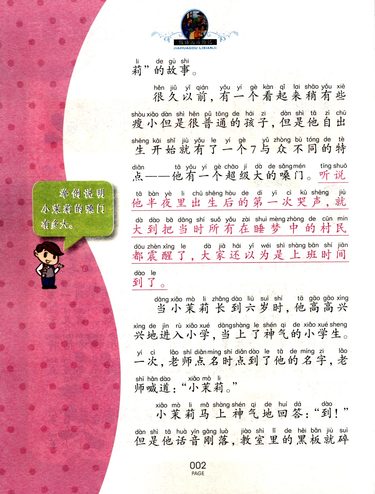 li de gù shi
莉”的故事。
hěn jiǔ yǐ qián yǒu yí gè kàn qǐ lai shāo yǒu xiē
很久以前，有一个看起来稍有些
shòu xiǎo dàn shì hěn pǔ tōng de hái zi dàn shì tā zì chū
瘦小但是很普通的孩子，但是他自出
shēng kāi shǐ jiù yǒu le yí gè yǔ zhòng bù tóng de tè
生开始就有了一个7与众不同的特
diǎn tā yǒu yí gè chāo jí dà de sǎng mén tīng shuō
点——他有一个超级大的嗓门。听说
tā bàn yè li chū shēng hòu de dì yī cì kū shēng jiù
他半夜里出生后的第一次哭声，就
dà dào bǎ dāng shí suǒ yǒu zài shuì mèng zhōng de cūn mín
大到把当时所有在睡梦中的村民
dōu zhèn xǐng le dà jiā hái yǐ wéi shì shàng bān shí jiān
都震醒了，大家还以为是上班时间
dào le
到了。
举例说明
小茉莉的嗓门
有多大。
dāng xiǎo mò li zhǎng dào liù suì shí tā gāo gāo xìng
当小茉莉长到六岁时，他高高兴
xìng de jìn rù xiǎo xué dāng shàng le shén qì de xiǎo xué shēng
兴地进入小学，当上了神气的小学生。
yí cì lǎo shī diǎn míng shí diǎn dào le tā de míng zi lǎo
一次，老师点名时点到了他的名字，老
shī hǎn dào xiǎo mò li
师喊道：“小茉莉。”
xiǎo mò li mǎ shàng shén qì de huí dá dào
小茉莉马上神气地回答：“到！”
dàn shì tā huà yīn gāng luò jiào shì lǐ de hēi bǎn jiù suì
但是他话音刚落，教室里的黑板就碎
002
PAGE